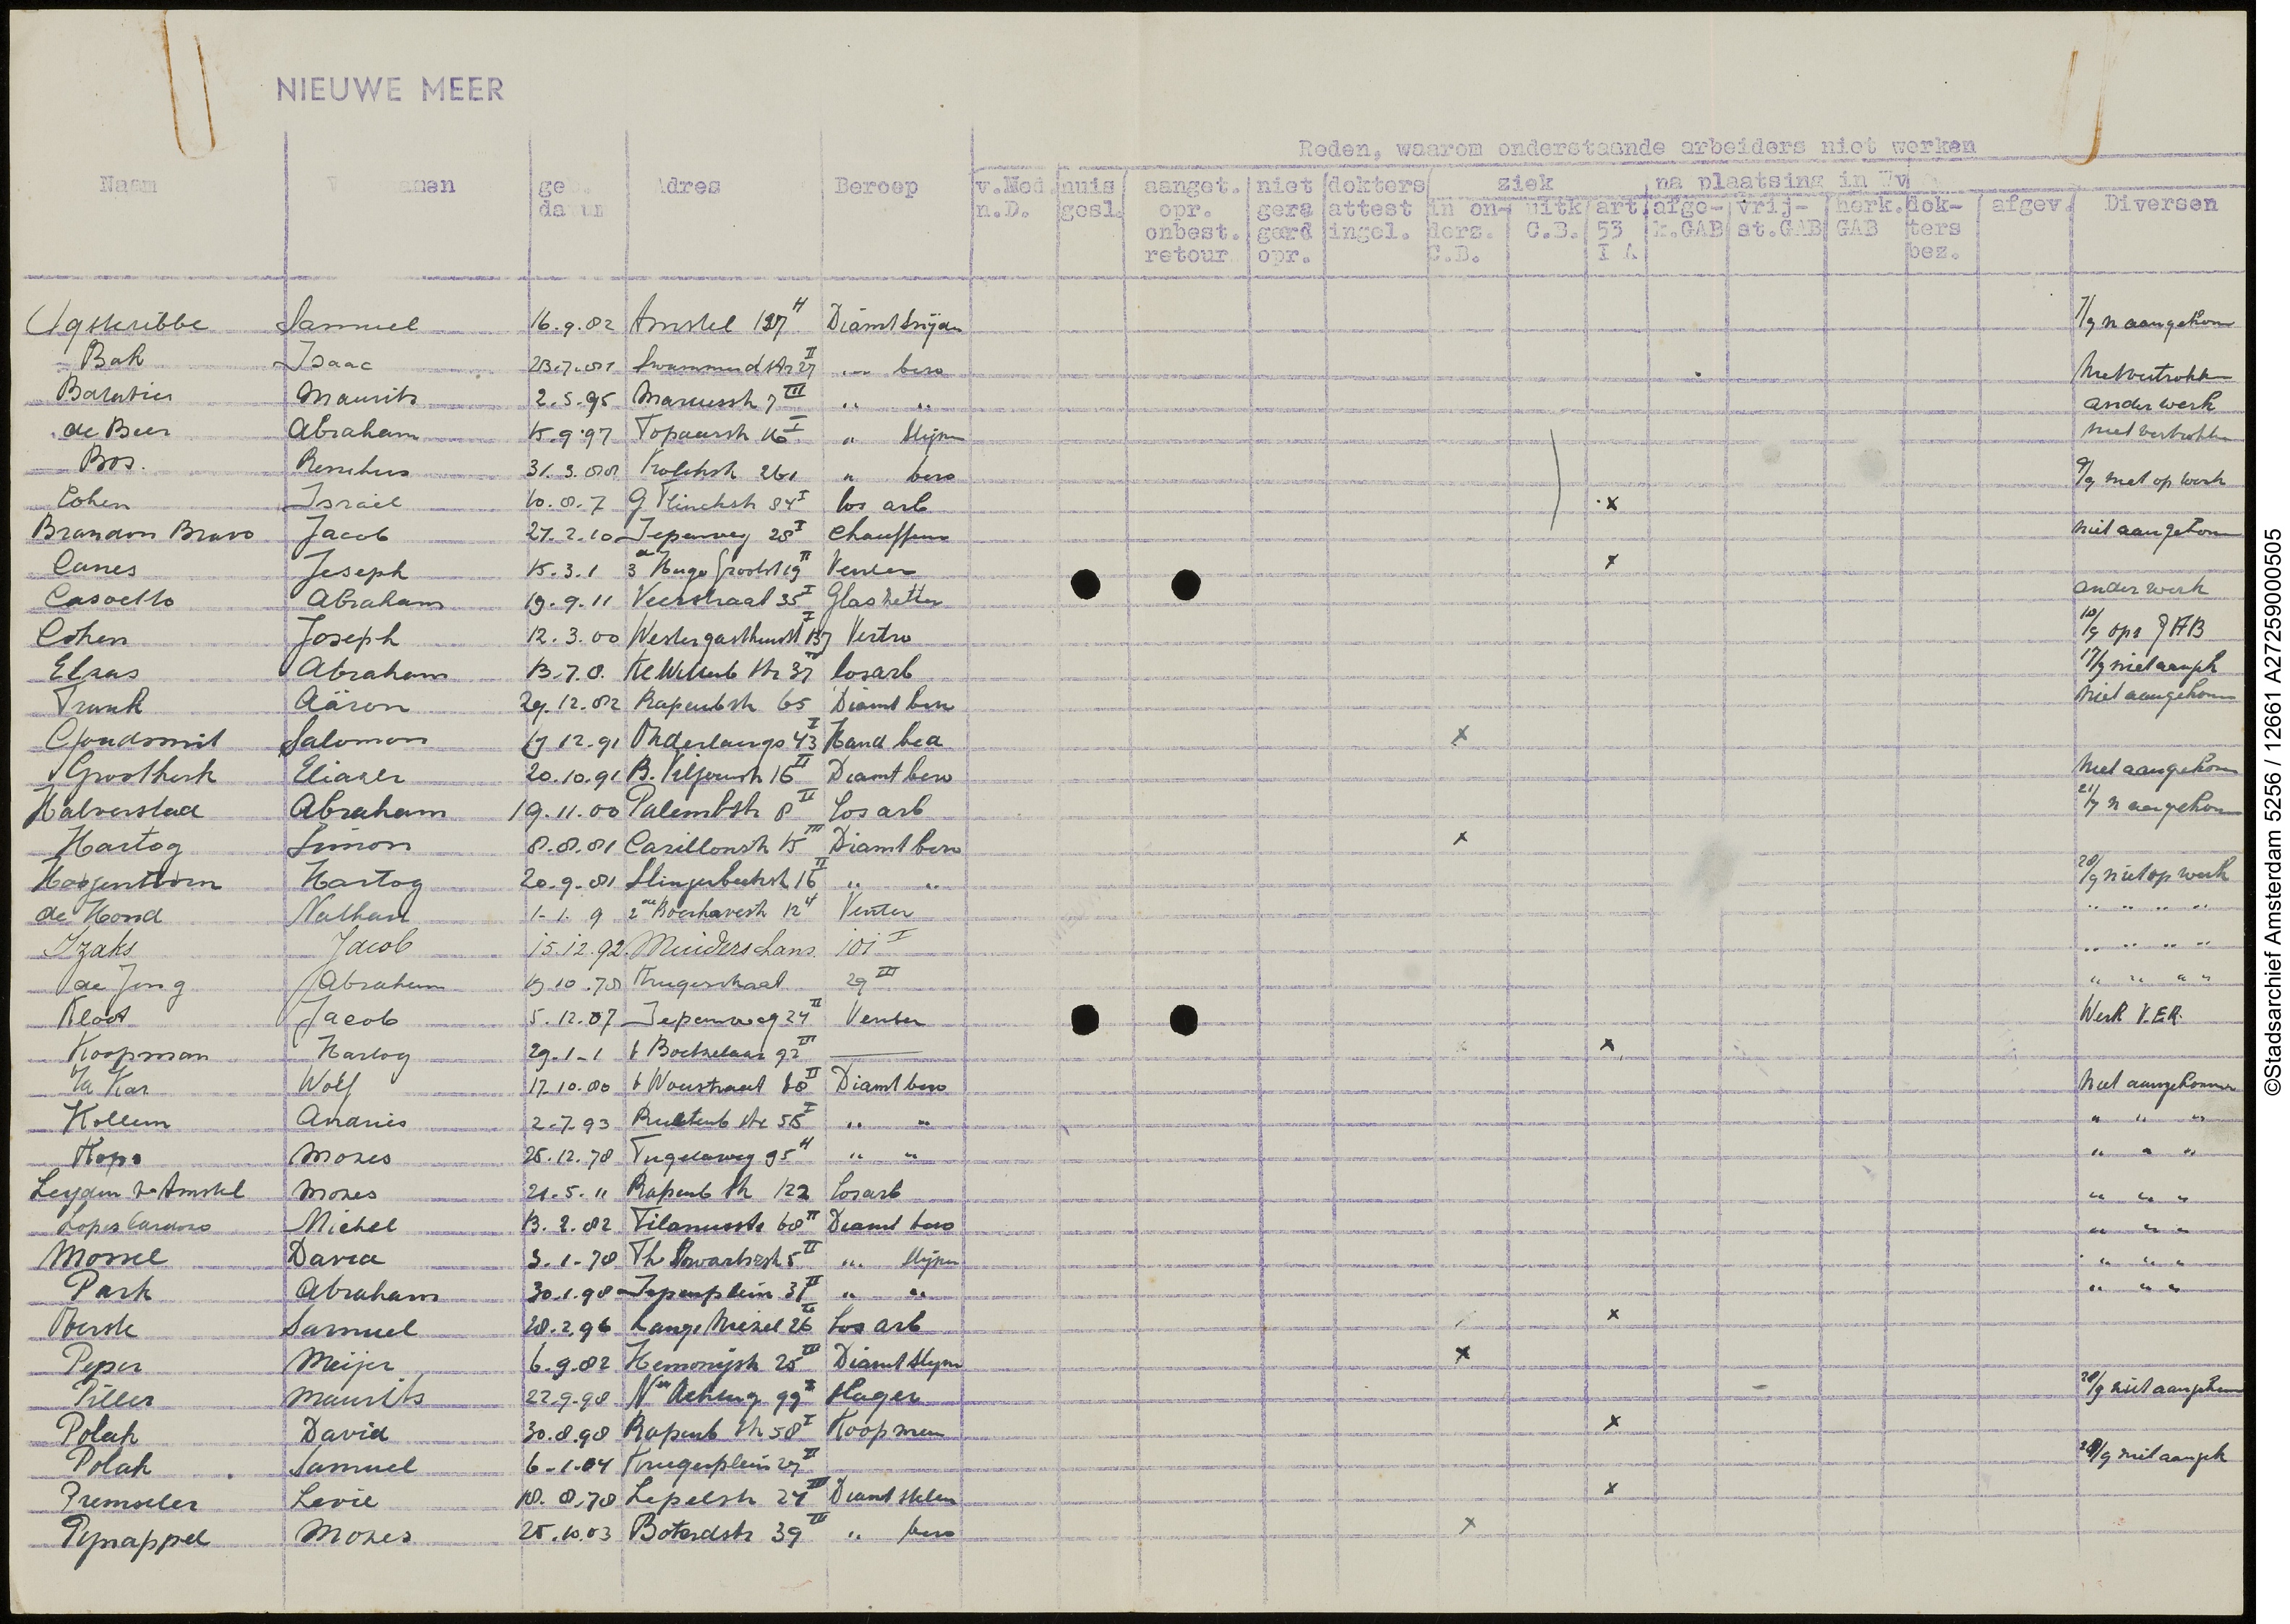 NIEUWE MEER
Reden, waarom onderstaande arbeiders niet werken
Naam V anen geb. datum Adres Beroep v.Ned. n.D. huis gesl. aanget. opr. onbest. retour niet gere geerd opr. dokters attest ingel. ziek in on- derz. C.B. uitk C.B. art. 53 I A na plaatsing in Wv afge- k.GAB vrij- st.GAB herk. GAB dok- ters bez. afgev. Diversen
Agsteribbe Samuel 16.9.82 Amstel 127 H Diamtsnijder 7/9 n aangekom
Bak Isaac 23.7.81 Swammerdstr 27 II " bew Niet vertrokken
Maurits 2.5.95 7 III " " ander werk
de Beer Abraham 15.9.97 Topaasstr 16 I " slijper niet vertrokken
Bos. 31.3.88 261 " bew 9/9 niet op werk
Cohen Israel 10.8.7 G Flinckstr 84 I los arb x
Brandon Bravo Jacob 27.2.10 Iepenweg 28 I Chauffeur niet aangekom
Canes Joseph 15.3.1 3e Hugo Grootst 19 II Venter x
Casoetto Abraham 19.9.11 Veerstraat 35 I Glaszetter ander werk
Cohen Joseph 12.3.00 Westergasthuisst 137 I Vertro 10/9 opr GAB
Elzas Abraham 13.7.8. Kl Wittenb str 37 losarb 17/9 niet aangek
Frank Aäron 29.12.82 Rapenbstr 65 Diamt bew Niet aangekom
Goudsmit Salomon 17.12.91 Onderlangs 43 I Hand bed x
Grootkerk Eliazer 20.10.91 B. Viljoenstr 16 II Diamt bew Niet aangekom
Halverstad Abraham 19.11.00 Palembstr 8 II Los arb 21/9 n aangekom
Hartog Simon 8.8.81 Carillonstr 15 III Diamt bew x
Hartog 20.9.81 Slingerbeekstr 16 II " " 20/9 niet op werk
de Hond Nathan 1-1.9 2de Boerhavestr 12 H Venter " " " "
Izaks Jacob 15.12.92. Muiderschans 101 I " " " "
de Jong Abraham 19.10.78 Krugerstraat 29 III " " " "
Kloot Jacob 5.12.07 Iepenweg 24 II Venter Werk V.E.R.
Koopman Hartog 29-1-1 v Boetzelaar 92 III —— x
Wolf 17.10.80 v Woustraat 88 II Diamt bew Niet aangekomen
Kollem Andries 2-7.93 55 I " " " " "
Kops Mozes 25.12.78 Tugelaweg 95 H " " " " "
Leyden v Amstel Mozes 21.5.11 Rapenb str 122 Losarb " " "
Lopes Cardozo Michel 13.2.82 68 II Diamt bew " " "
Mossel David 3.1.78 Th Swartzestr 5 II " slijper " " "
Park Abraham 30.1.98 Iepenplein 37 II " " " " "
Samuel 28.2.96 Lange Niezel 26 II Los arb x
Peper Meijer 6.9.82 Hemonijstr 25 III Diamt slijper x
Piller Maurits 22.9.98 Nwe Achtergr 99 I Slager 28/9 niet aangekom
Polak David 30.8.98 Rapenb str 58 I Koopman x
Polak Samuel 6-1.04 Krugerplein 29 II 28/9 niet aangek
Premseler Levie 18.8.78 Lepelstr 24 III Diamt x
Pynappel Mozes 25.10.03 39 III " bew x
©Stadsarchief Amsterdam 5256 / 12661 A27259000505